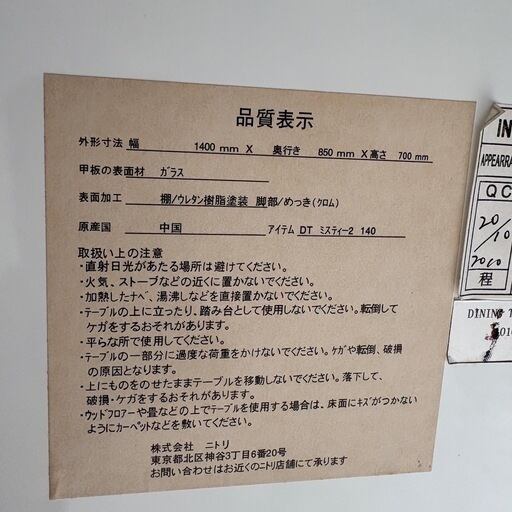 品質表示
外形寸法 幅 1400 mm X 奥行き 850 mm X 高さ 700 mm
甲板の表面材 ガラス
表面加工 棚/ウレタン樹脂塗装 脚部/めっき(クロム)
原産国 中国 アイテム DT ミスティー2 140
取扱い上の注意
・直射日光があたる場所は避けてください。
・火気、ストーブなどの近くに置かないでください。
・加熱したナベ、湯沸しなどを直接置かないでください。
・テーブルの上に立ったり、踏み台として使用しないでください。転倒して
ケガをするおそれがあります。
・平らな所で使用してください。
・テーブルの一部分に過度な荷重をかけないでください。ケガや転倒、破損
の原因となります。
・上にものをのせたままテーブルを移動しないでください。落下して、
破損・ケガをするおそれがあります。
・ウッドフロアーや畳などの上でテーブルを使用する場合は、床面にキズがつかない
ようにカーペットなどを敷いてください。
株式会社 ニトリ
東京都北区神谷3丁目6番20号
お問い合わせはお近くのニトリ店舗にて承ります
IN
APPEARRA
QC
20/10
2010
程
DINING T